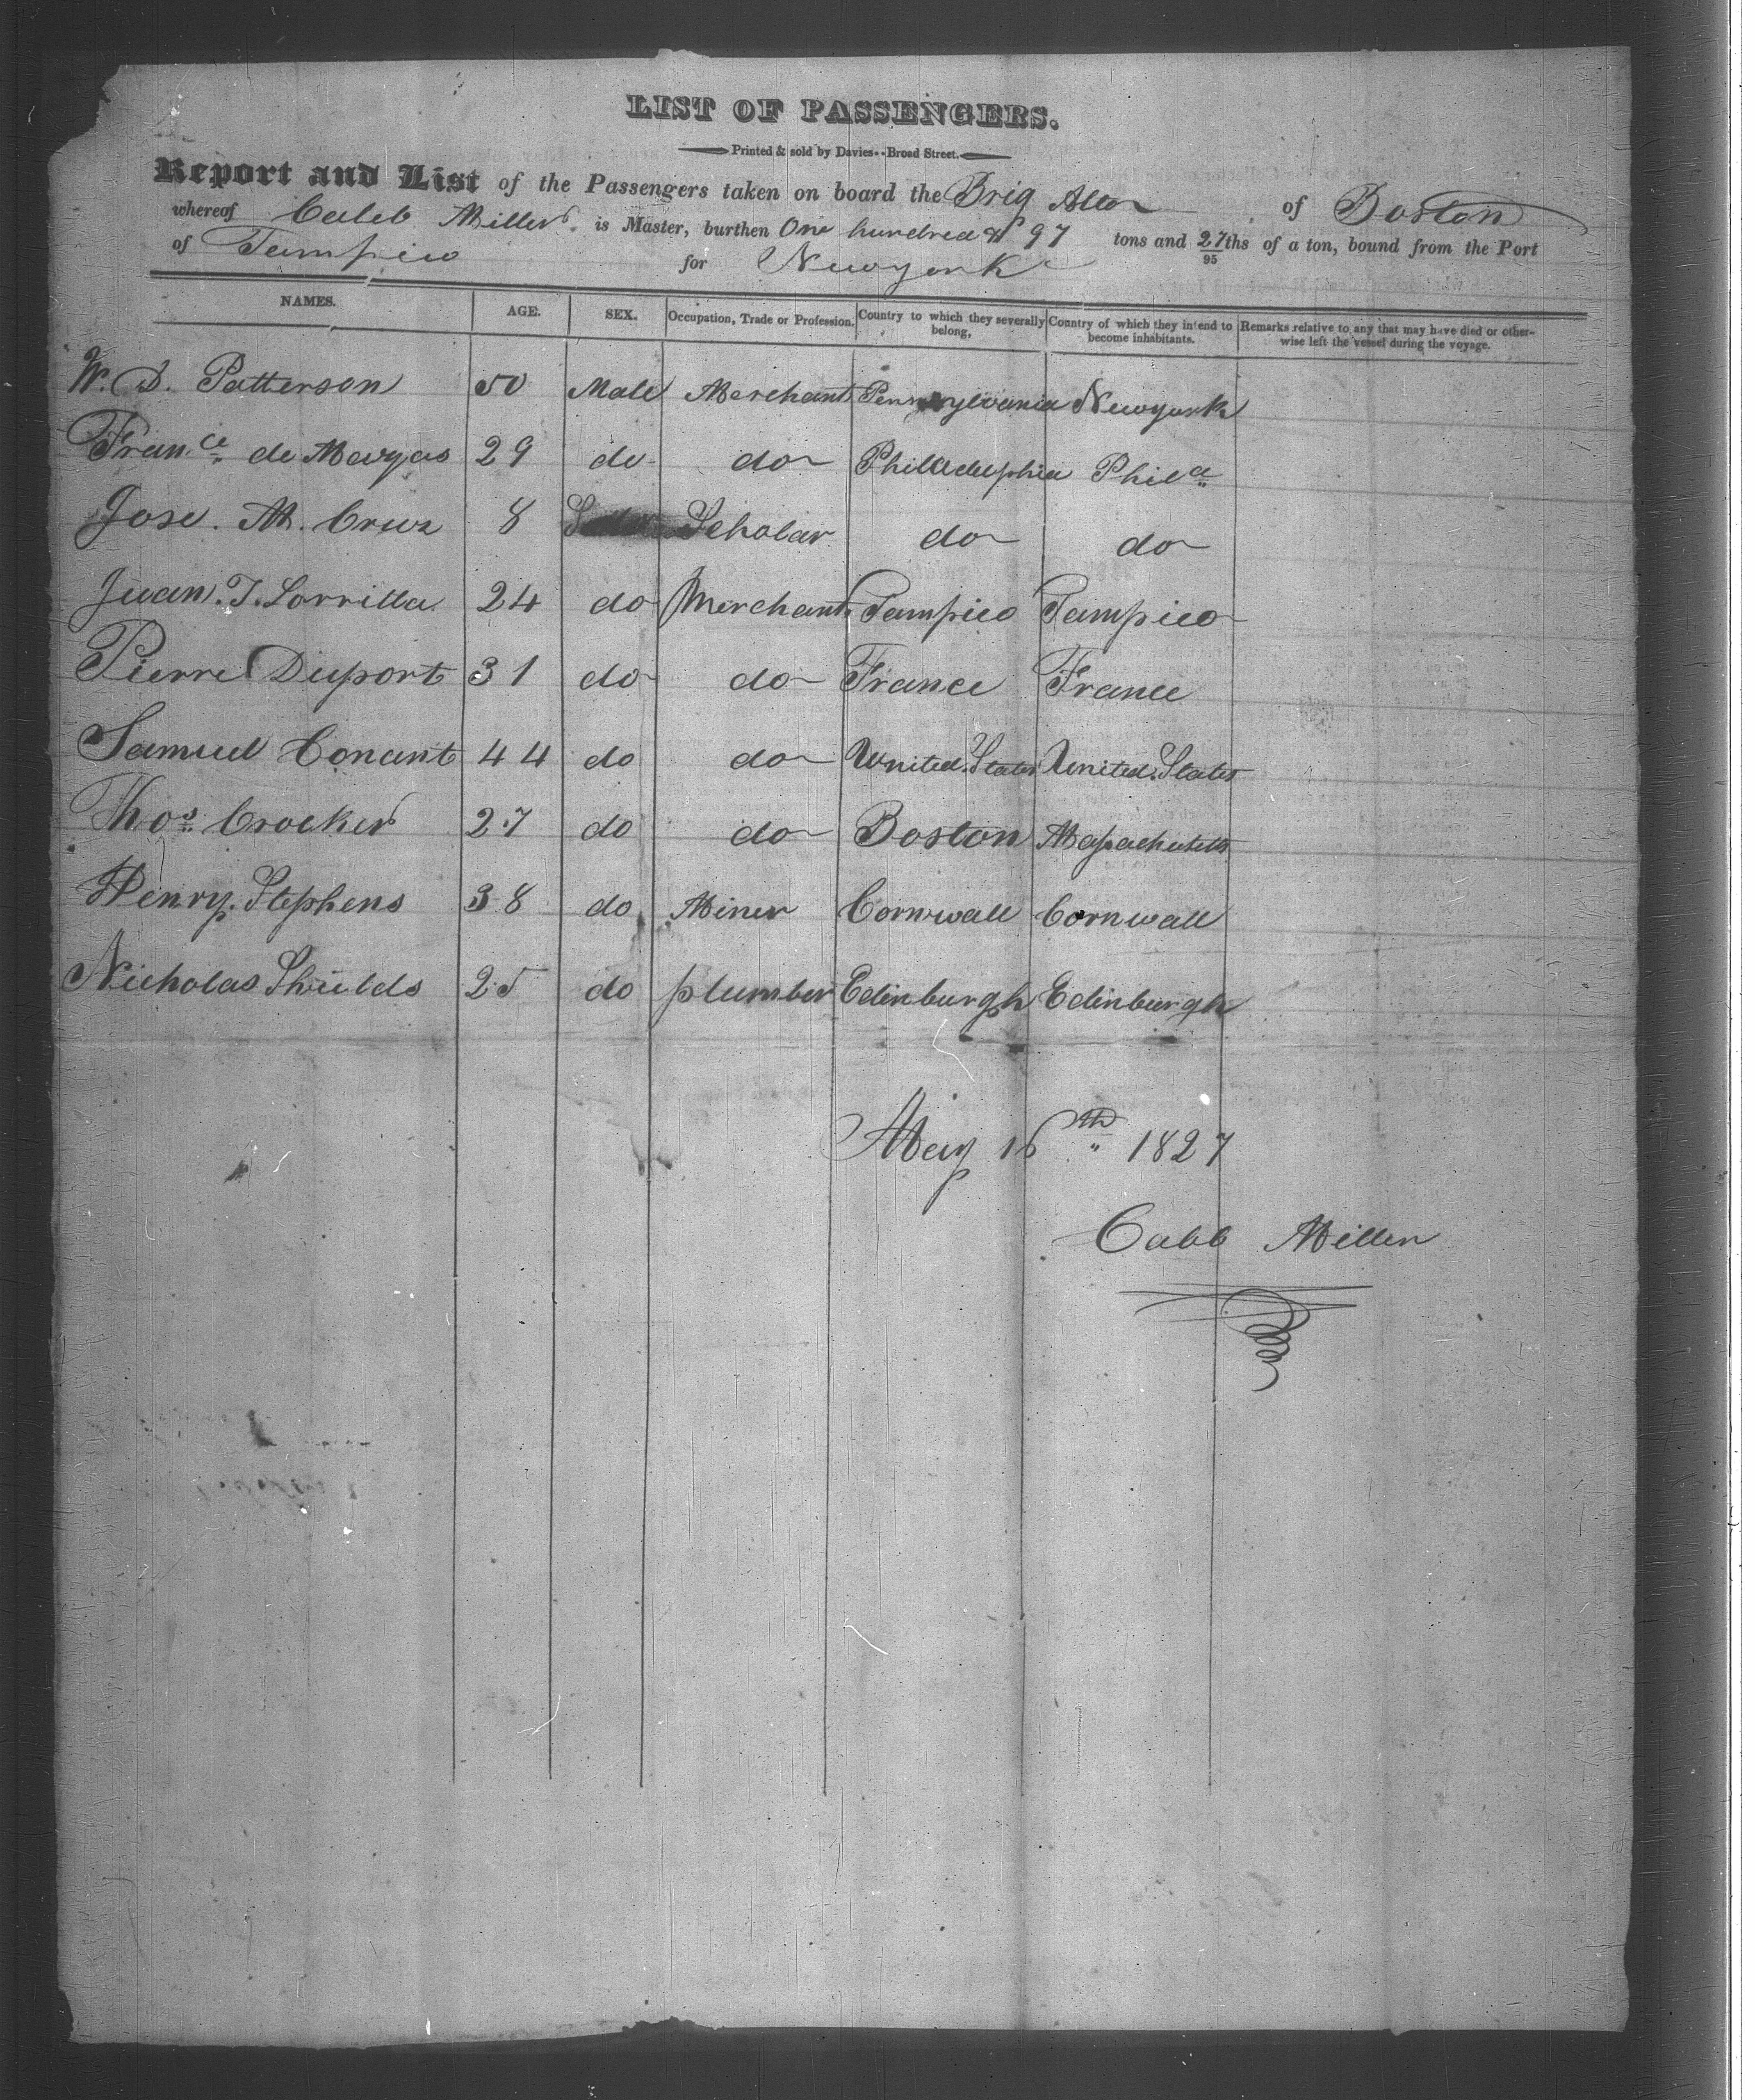 LIST OF PASSENGERS.
Printed & sold by Davies--Broad Street.
Report and List of the Passengers taken on board the Brig of Boston
whereof Caleb Miller is Master, burthen One hundred & 97 tons and 27/95ths of a ton, bound from the Port
of Tampico for Newyork
NAMES. AGE. SEX. Occupation, Trade or Profession. Country to which they severally belong, Country of which they intend to become inhabitants. Remarks relative to any that may have died or otherwise left the vessel during the voyage.
W. D. Patterson 50 Male Merchant Pennsylvania Newyork
Fran.ce de 29 do do Philladelphia Phila
Jose. M. Cruz 8 Scholar do do
Juan. T. Lorrilla 24 do Merchant Tampico Tampico
Pierre Duport 31 do do France France
Samuel Conant 44 do do United States United States
Thos Crocker 27 do do Boston Massachusetts
Henry Stephens 38 do Miner Cornwall Cornwall
Nicholas Shields 25 do plumber Edinburgh Edinburgh
May 16th 1827
Caleb Miller